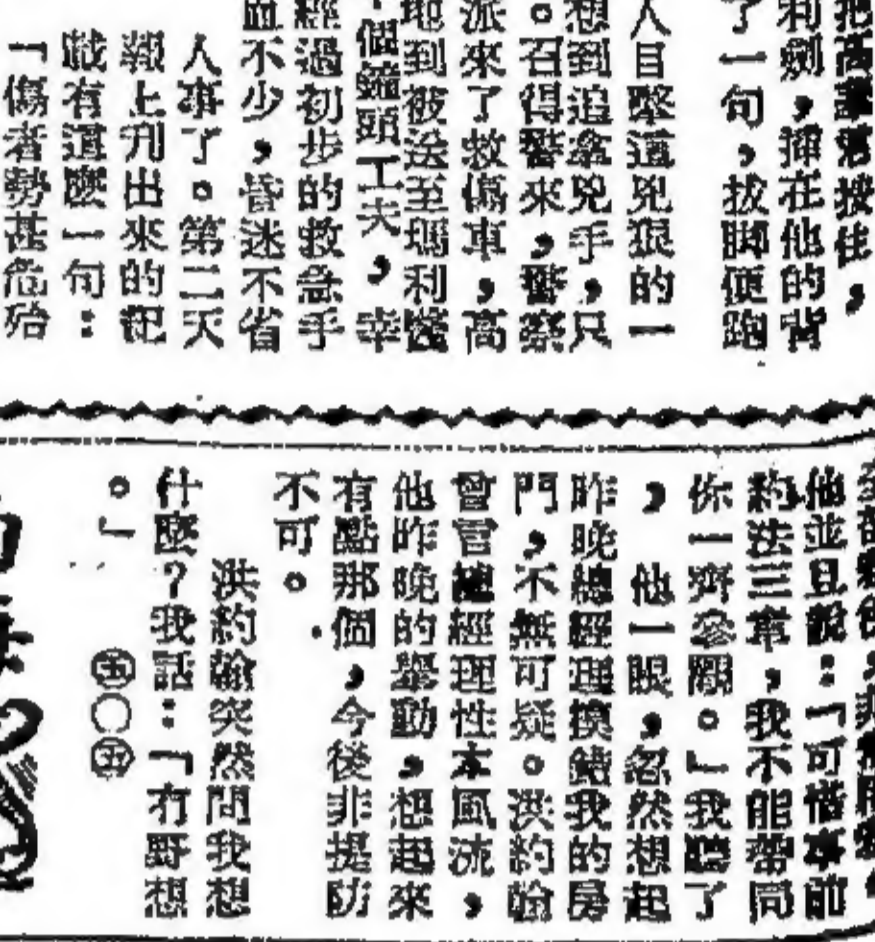 把高
按住，
利劍，揷在他的背
了一句，拔脚便跑
人目擊這兇狠的一
想到追拿兇手，只
。召得警來，警察
派來了救傷車，高
地到被送至瑪利醫
個鐘頭工夫，幸
經過初步的救急手
血不少，昏迷不省
人事了。第二天
報上刋出來的記
載有這麼一句：
「傷者勢甚危殆
他並且說：「可惜事前
約法三章，我不能帶同
你一齊參觀。」我聽了
，他一眼，忽然想起
昨晚總經理摸錯我的房
門，不無可疑。洪約翰
曾言總經理性本風流，
他昨晚的舉動，想起來
有點那個，今後非提防
不可。
洪約翰突然問我想
什麼？我話：「冇野想
。」
五〇五